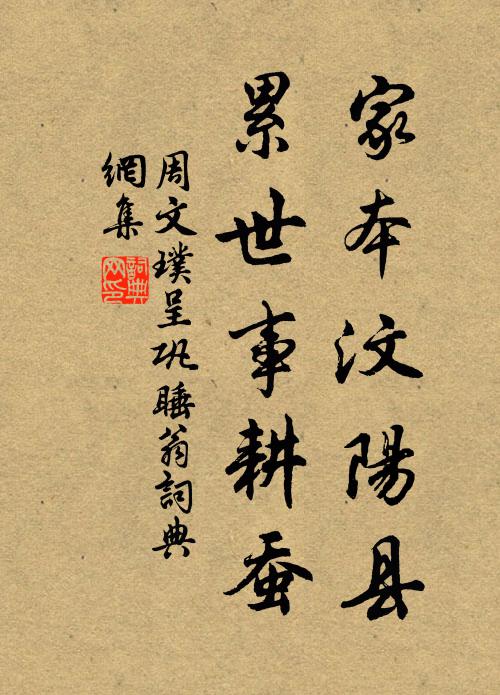 家本汶陽县
累世事耕蚕
周文璞呈巩睡翁詞典
網集
詞典网印